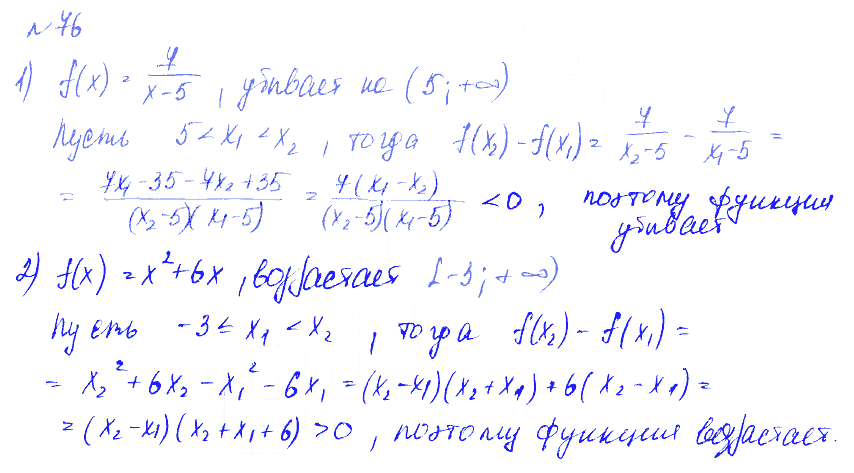 № 76
1) f(x) = 7/(x-5), убывает на (5; +∞)
Пусть 5 < x₁ < x₂, тогда f(x₂) - f(x₁) = 7/(x₂-5) - 7/(x₁-5) =
= (7x₁ - 35 - 7x₂ + 35)/((x₂-5)(x₁-5)) = 7(x₁ - x₂)/((x₂-5)(x₁-5)) < 0, поэтому функция
убывает
2) f(x) = x² + 6x, возрастает [-3; +∞)
Пусть -3 ≤ x₁ < x₂, тогда f(x₂) - f(x₁) =
= x₂² + 6x₂ - x₁² - 6x₁ = (x₂ - x₁)(x₂ + x₁) + 6(x₂ - x₁) =
= (x₂ - x₁)(x₂ + x₁ + 6) > 0, поэтому функция возрастает.